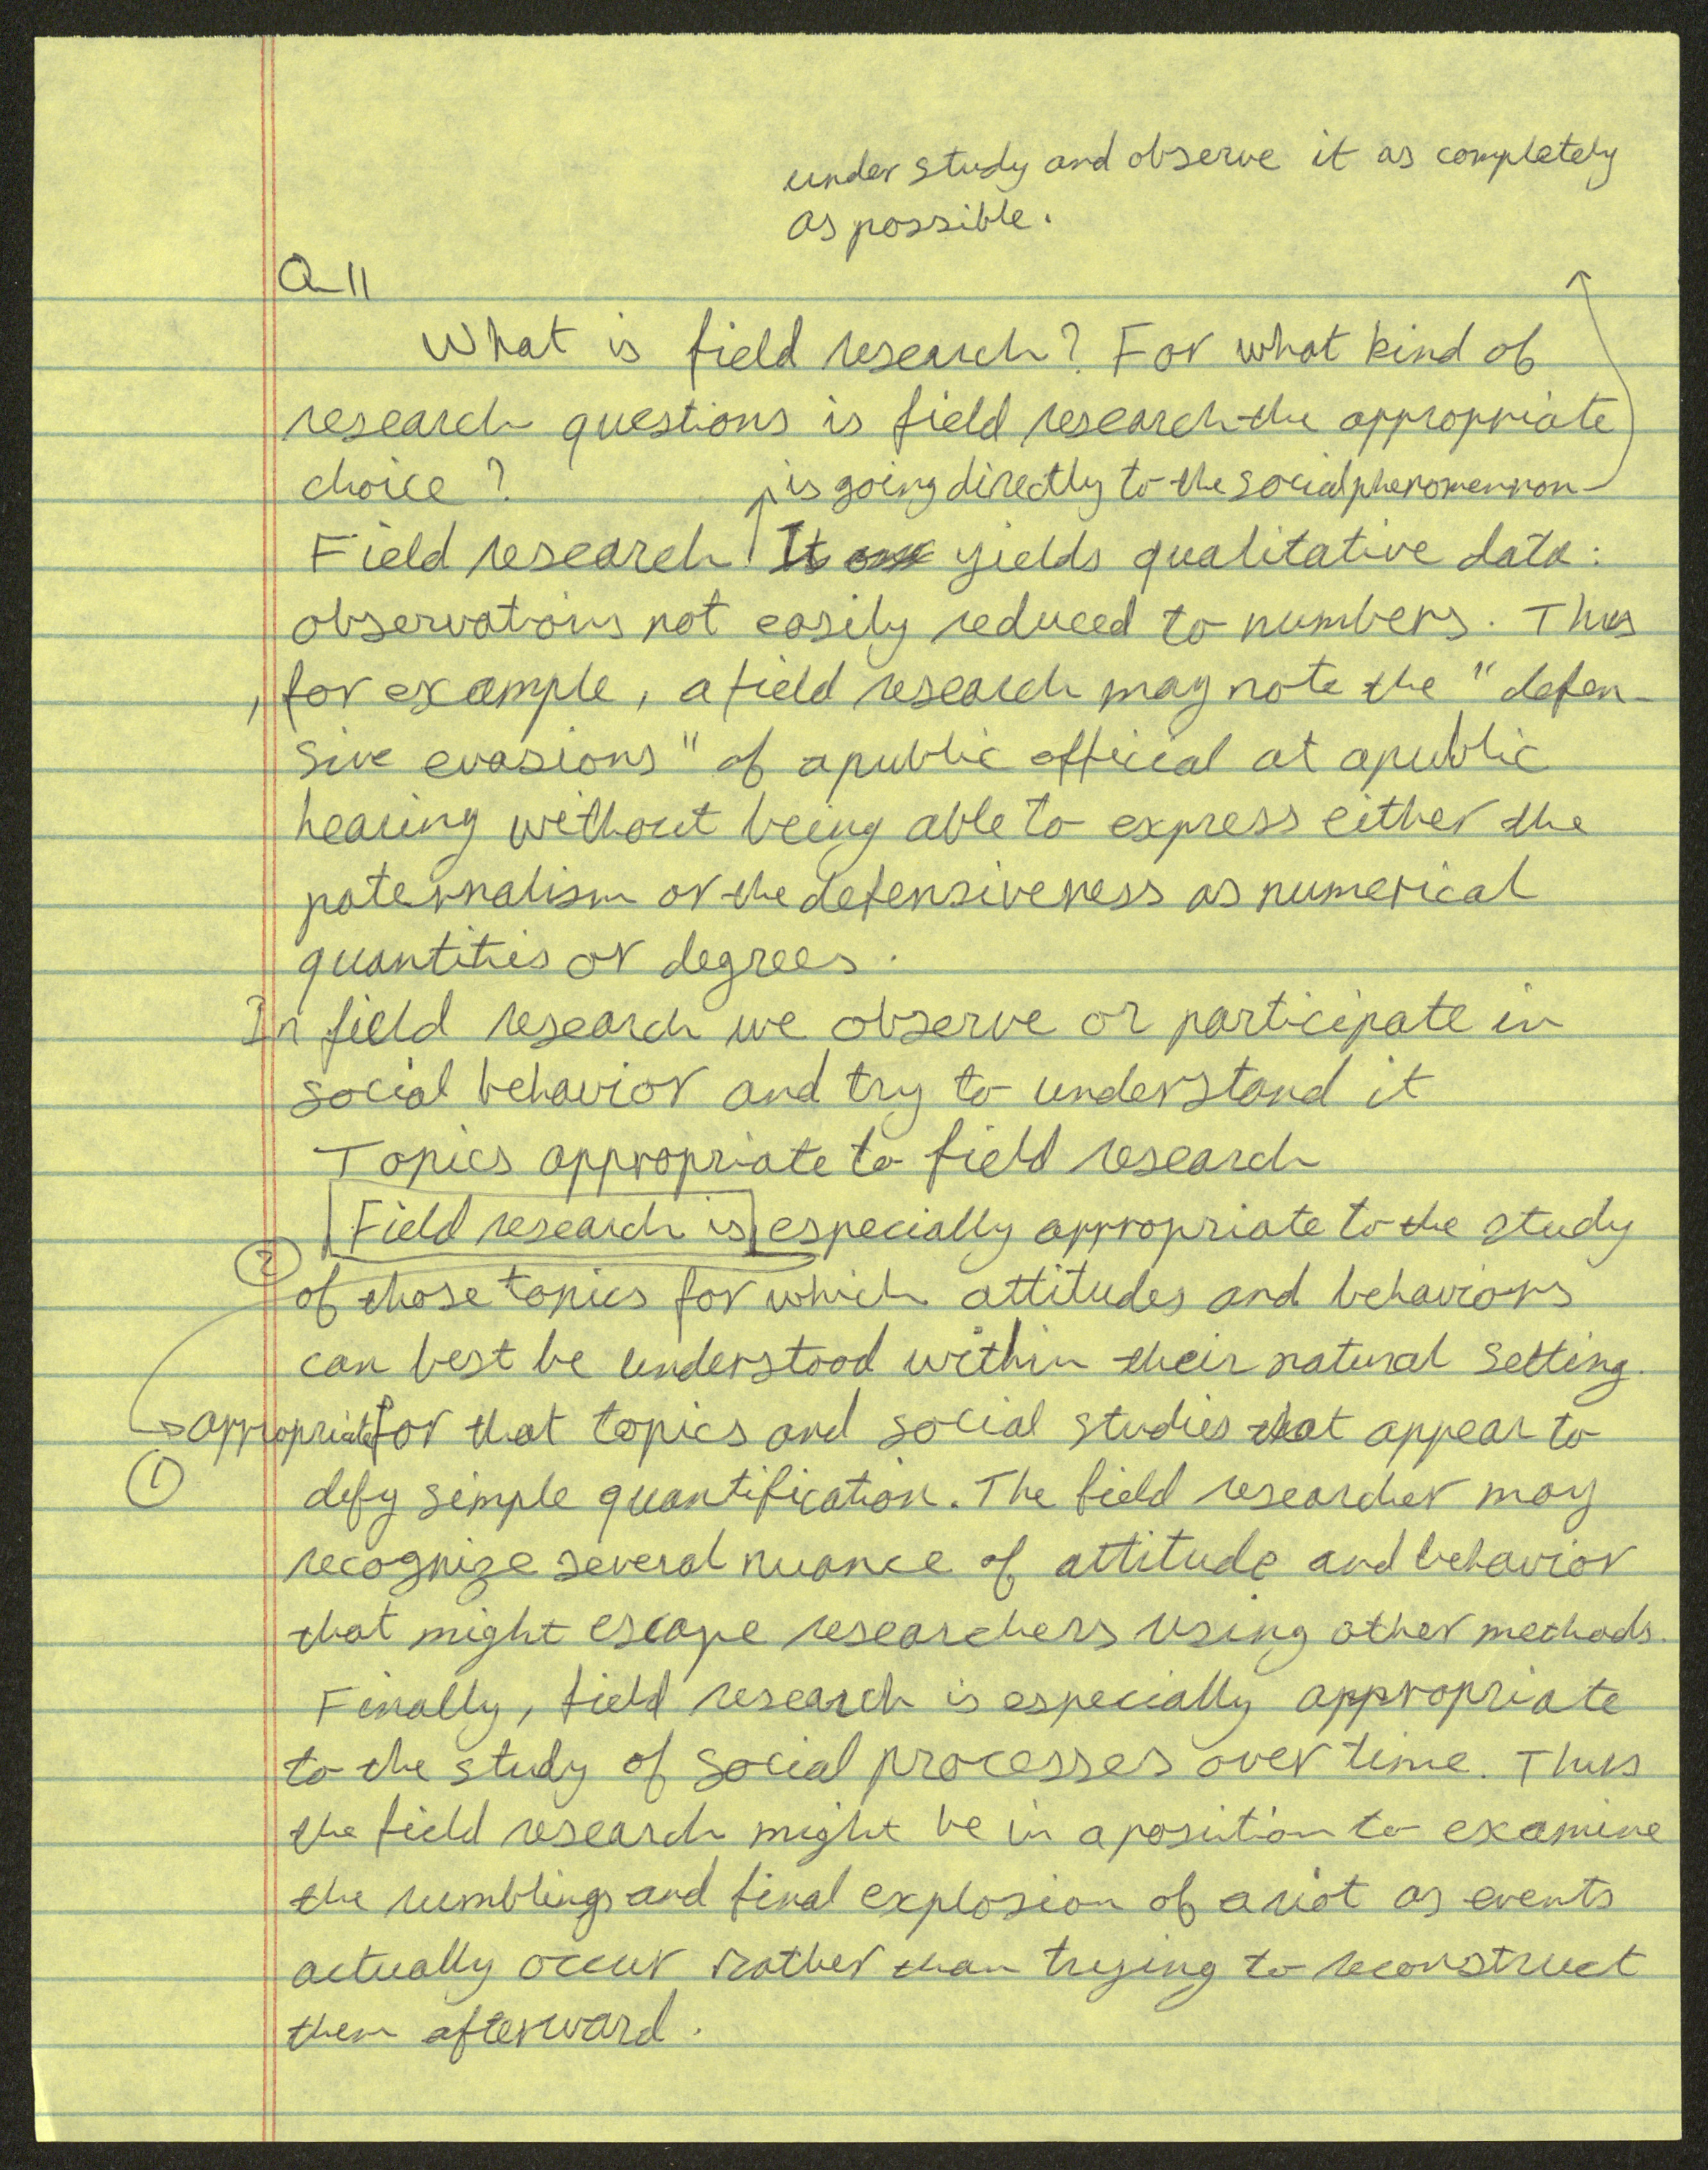 under study and observe it as completely
as possible.
Q 11
What is field research? For what kind of
research questions is field research the appropriate
choice?
is going directly to the social phenomennon
Field research It yields qualitative data:
observations not easily reduced to numbers. Thus
, for example, a field research may note the "defen-
sive evasions" of a public official at a public
hearing without being able to express either the
paternalism or the defensiveness as numerical
quantitis or degrees.
In field research we observe or participate in
social behavior and try to understand it
Topics appropriate to field research
Field research is especially appropriate to the study
2
of those topics for which attitudes and behaviors
can best be understood within their natural setting.
appropriate for that topics and social studies that appear to
1
defy simple quantification. The field researcher may
recognize several nuance of attitude and behavior
that might escape researchers using other methods.
Finally, field research is especially appropriate
to the study of social processes over time. Thus
the field research might be in a posiition to examine
the rumblings and final explosion of a riot as events
actually occur rather than trying to reconstruct
them afterward.